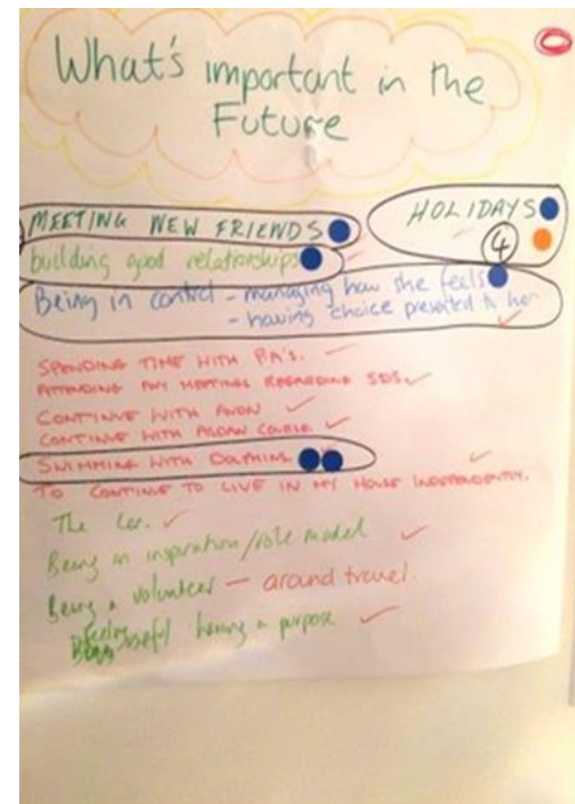 What's important in the
Future
MEETING NEW FRIENDS
HOLIDAYS
4
building good relationships
Being in control - managing how she feels
- having choice presented to her
SPENDING TIME WITH P.A'S.
ATTENDING ANY MEETINGS REGARDING SDS
CONTINUE WITH AVON
CONTINUE WITH COURSE
SWIMMING WITH DOLPHINS
TO CONTINUE TO LIVE IN MY HOUSE INDEPENDENTLY.
The
Being an inspiration/role model
Being a volunteer - around travel.
feeling
useful having a purpose